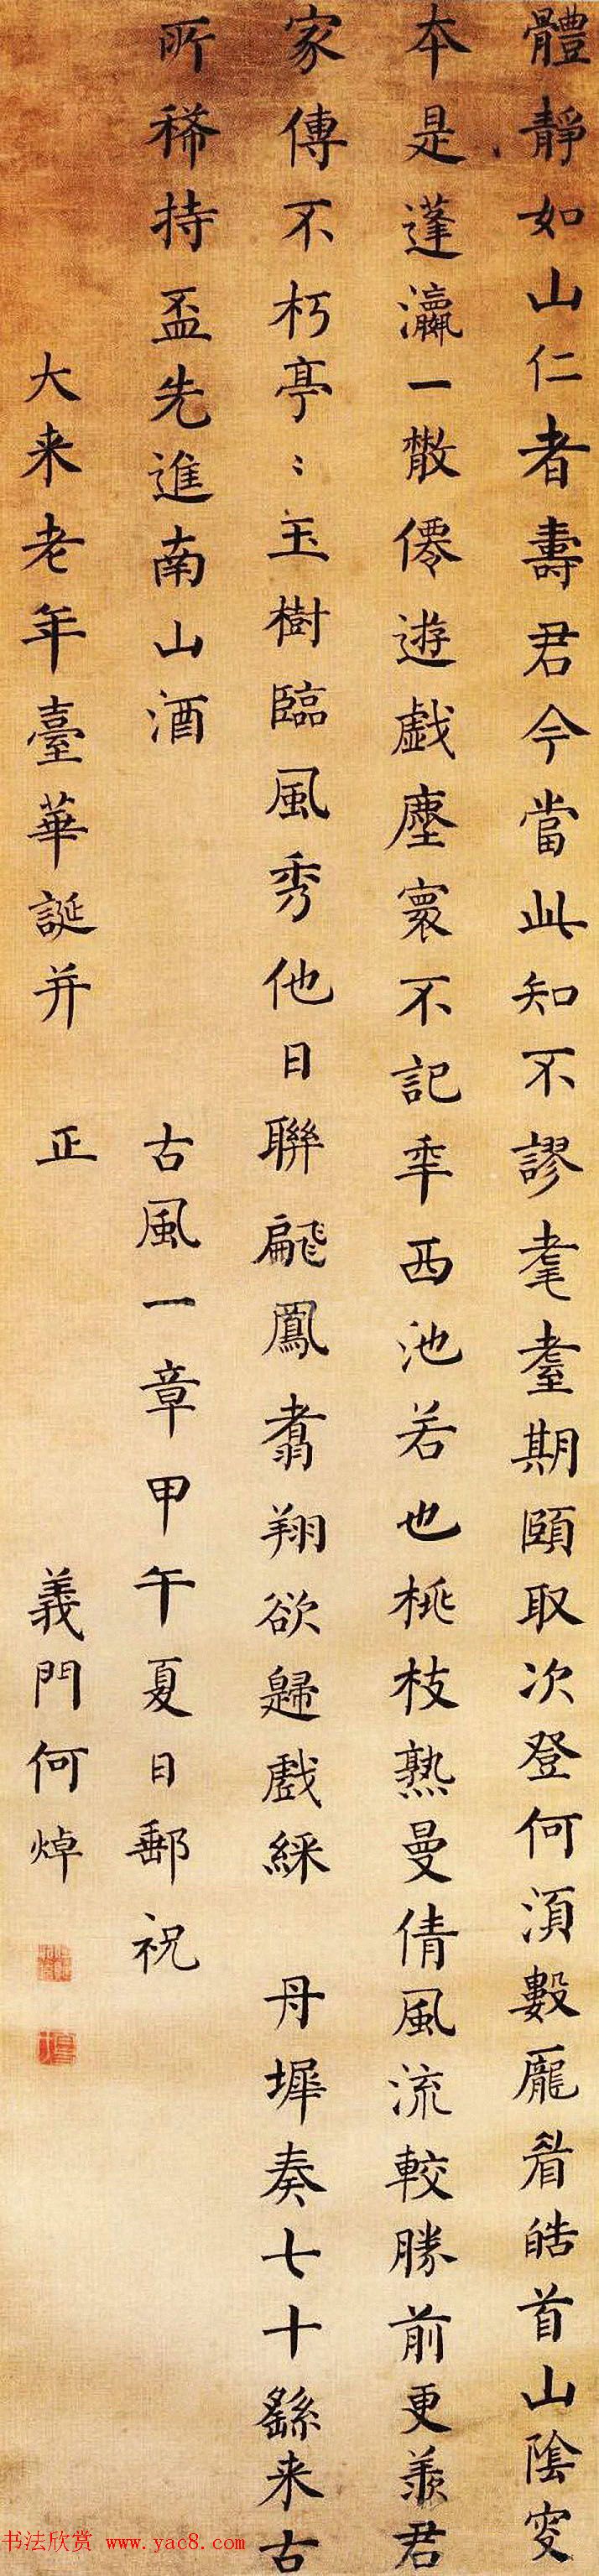 體靜如山仁者壽君今當此知不謬耄耋期頤取次登何湏數龐眉皓首山陰叟
本是蓬瀛一散僊遊戯塵寰不記年西池若也桃枝熟曼倩風流較勝前更羨君
家傳不朽亭〻玉樹臨風秀他日聯翩鳳翥翔欲歸戲綵 丹墀奏七十繇来古
所稀持盃先進南山酒 古風一章甲午夏日郵祝
大来老年臺華誕并 正 義門何焯
书法欣赏 www.yac8.com